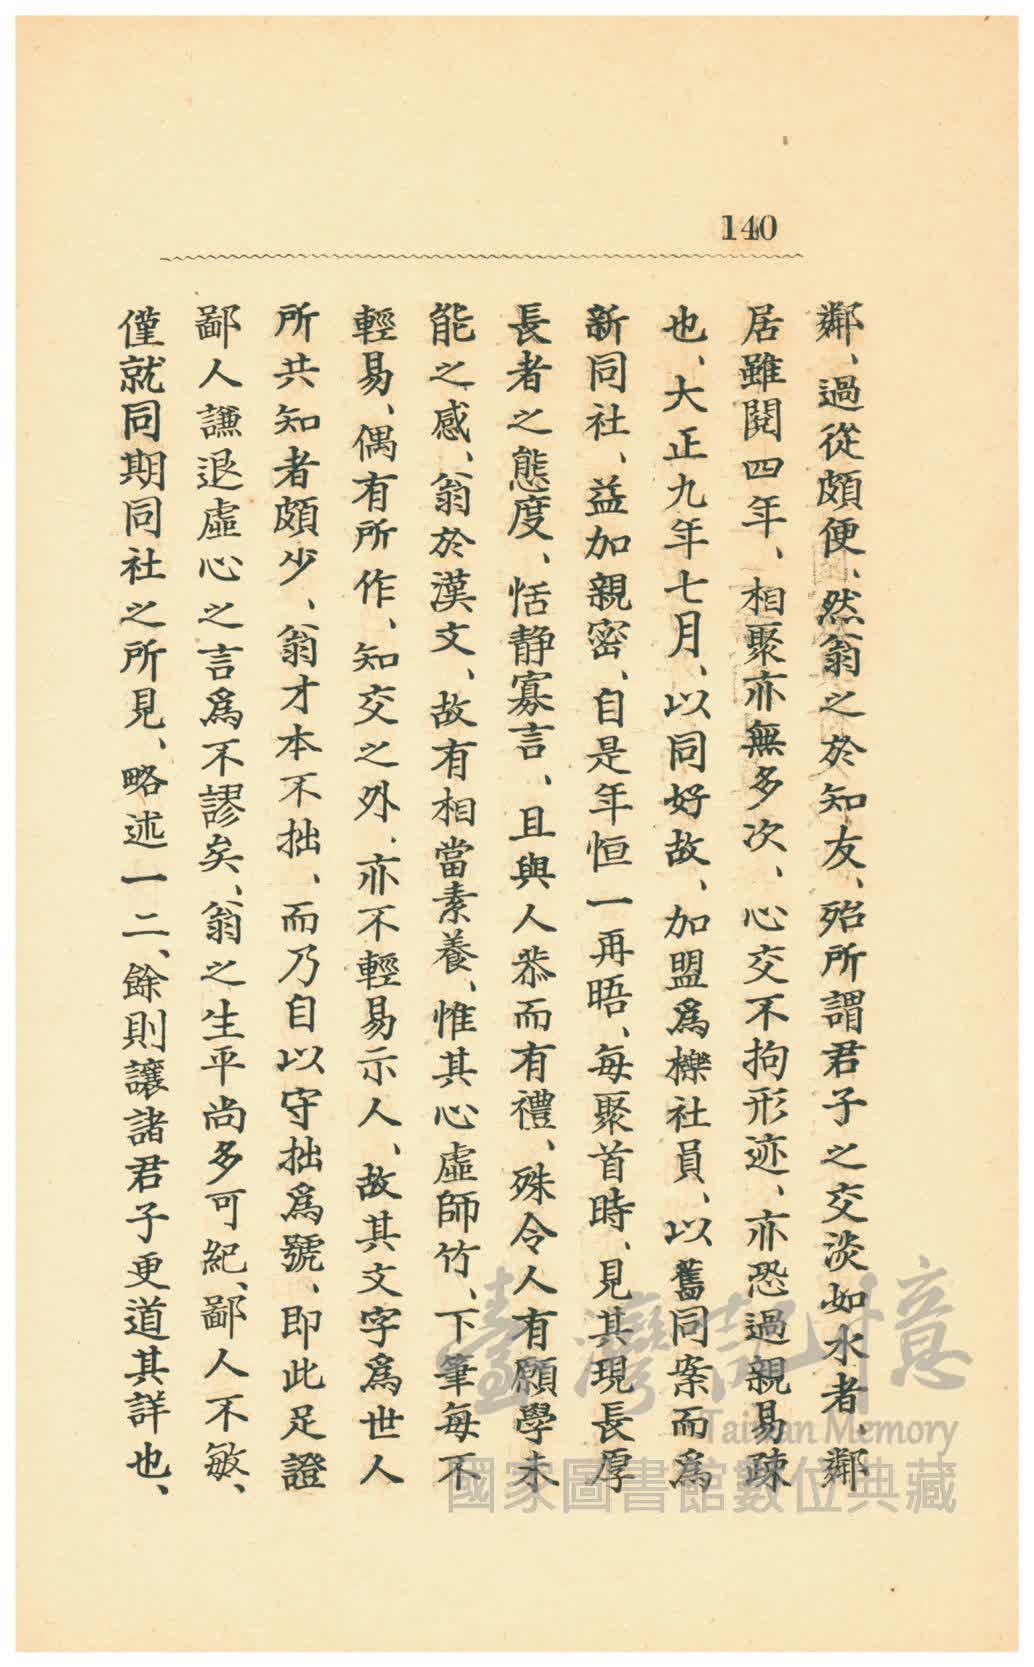 140
鄰、過從頗便、然翁之於知友、殆所謂君子之交淡如水者、鄰
居雖閱四年、相聚亦無多次、心交不拘形迹、亦恐過親易疎
也、大正九年七月、以同好故、加盟爲櫟社員、以舊同案而爲
新同社、益加親密、自是年恒一再晤、每聚首時、見其現長厚
長者之態度、恬静寡言、且與人恭而有禮、殊令人有願學未
能之感、翁於漢文、故有相當素養、惟其心虛師竹、下筆每不
輕易、偶有所作、知交之外、亦不輕易示人、故其文字爲世人
所共知者頗少、翁才本不拙、而乃自以守拙爲號、即此足證
鄙人謙退虛心之言爲不謬矣、翁之生平尚多可紀、鄙人不敏、
僅就同期同社之所見、略述一二、餘則讓諸君子更道其詳也、
臺灣記憶
Taiwan Memory
國家圖書館數位典藏